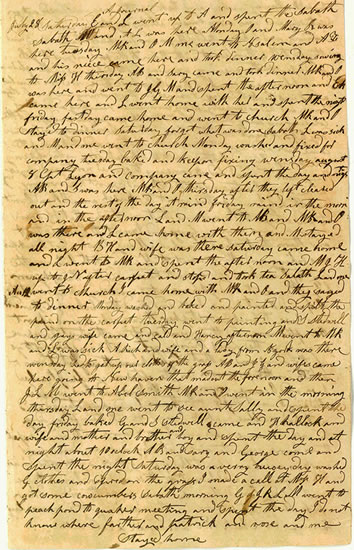 July 28 Saturday E and L went up to A and spent the Sabath
Sabath M and L was here Monday and Mary K was
here tuesday MK and O M me went to Salem and A B
and his niece came here and took dinner wensday sewing
to Mis H thursday AB and mary came and took dinner MK and O
was here and went to J G M and spent the afternoon and
came here and L went home with her and spent the night
friday fast day came home and went to church MK and O
Stayed to dinner Saturday forgot what was done Sabath L was sick
and M and me went to church Monday washed and fixed for
company tuesday baked and keep on fixing wensday august
8 Cpt Lyon and company came and spent the day and night
MK and I was here MK and O thursday after they left cleared
out and the rest of the day it raind friday rain in the morn
and in the afternoon L and M went to M B and MK and O
was there and L came home with them and M stayed
all night B H and wife was there saturday came home
and L went to MK and spent the after noon and M J H
up to J N after carpet and stopd and took tea Sabath L and me
went to church L came home with MK and O and they staged
to dinner Monday washd and baked and painted and
on the carpet tuesday went to painting and J Stilwell
and wife came and call and Harvey afternoon M went to MK
and L was sick and wife and a lady from N york was there
wensday and wife came
here going to New haven that made the forenoon and then
L M went to Abel Smith MK and O went in the morning
thursday L and me went to see aunt Sally and spent the
day friday baked G and J Stilwell came and K hallock and
wife and mother and brothers boy and spent the day and at
night about 10 oclock AB and mary and George come and
Spent the night Saturday was a very buisey day washed
6 dishes and the grass I made a call at Mis H and
got some cowcumbers Sabath morning G J K L M went to
peach pond to quaker meeting and spent the day I dont
know where farther and patrick an rose and me
Stayed home